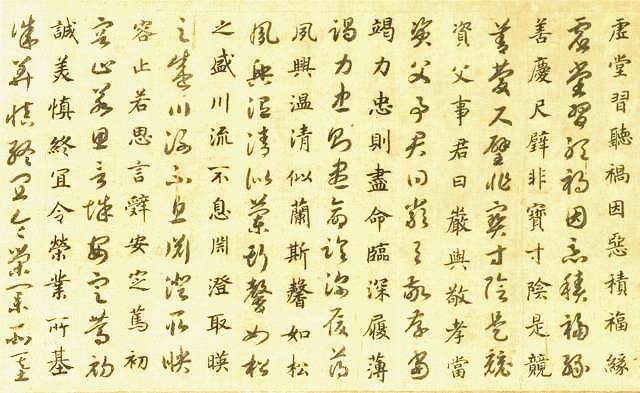 虛堂習聽禍因惡積福緣
虛堂習聽禍因惡積福緣
善慶尺璧非寶寸陰是競
善慶尺璧非寶寸陰是競
資父事君曰嚴與敬孝當
資父事君曰嚴與敬孝當
竭力忠則盡命臨深履薄
竭力忠則盡命臨深履薄
夙興温清似蘭斯馨如松
夙興温清似蘭斯馨如松
之盛川流不息淵澄取暎
之盛川流不息淵澄取暎
容止若思言辭安定篤初
容止若思言辭安定篤初
誠美慎終宜令榮業所基
誠美慎終宜令榮業所基